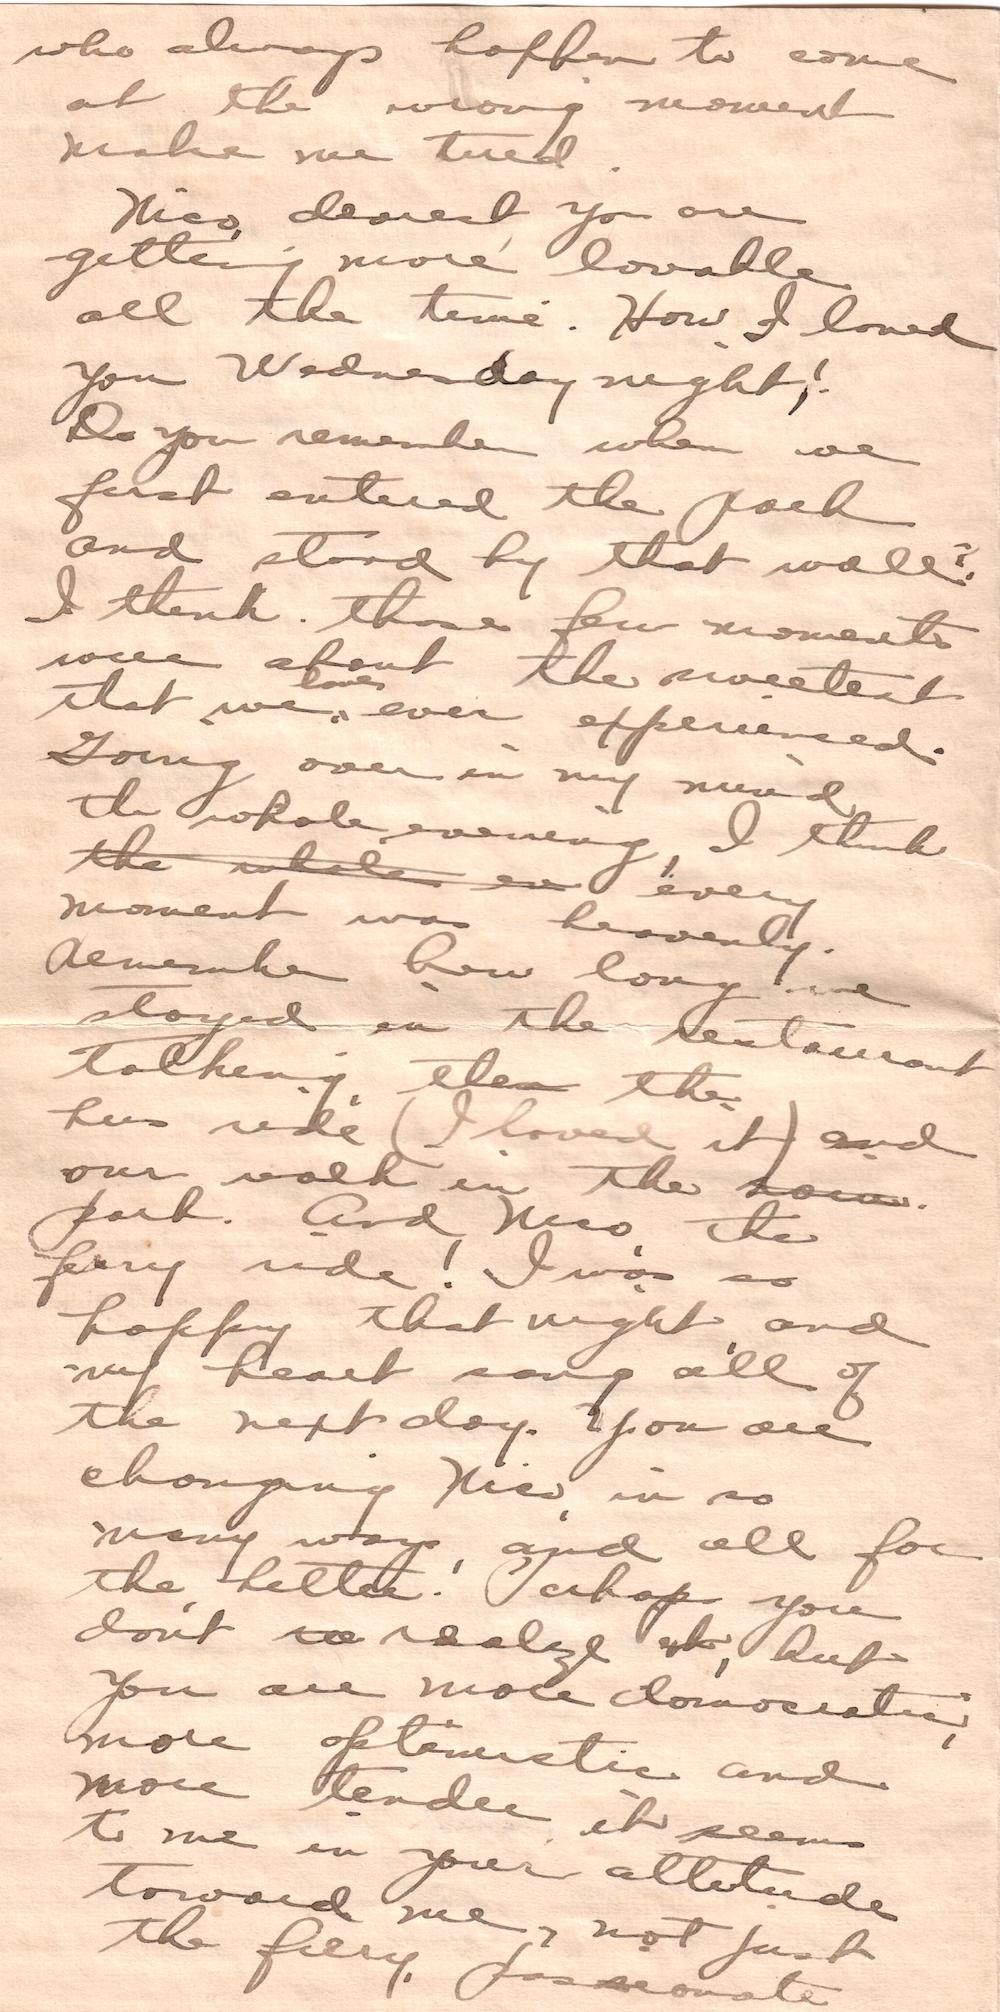 who always happen to come
at the wrong moment
make me tired.
Nico, dearest, you are
getting more lovable
all the time. How I loved
you Wednesday night!
Do you remember when we
first entered the park
and stood by that wall?
I think those few moments
were about the sweetest
that we have ever experienced.
Going over in my mind
the whole evening, I think
the whole ev every
moment was heavenly.
Remember how long we
stayed in the restaurant
talking, then the
bus ride (I loved it) and
our walk in the
park. And Nico, the
ferry ride! I was so
happy that night, and
my heart sang all of
the next day. You are
changing Nico, in so
many ways, and all for
the better! Perhaps you
don't realize it, but
you are more domocratic,
more optimistic and
more tender it seems
to me in your attitude
toward me, not just
the fiery, passionate